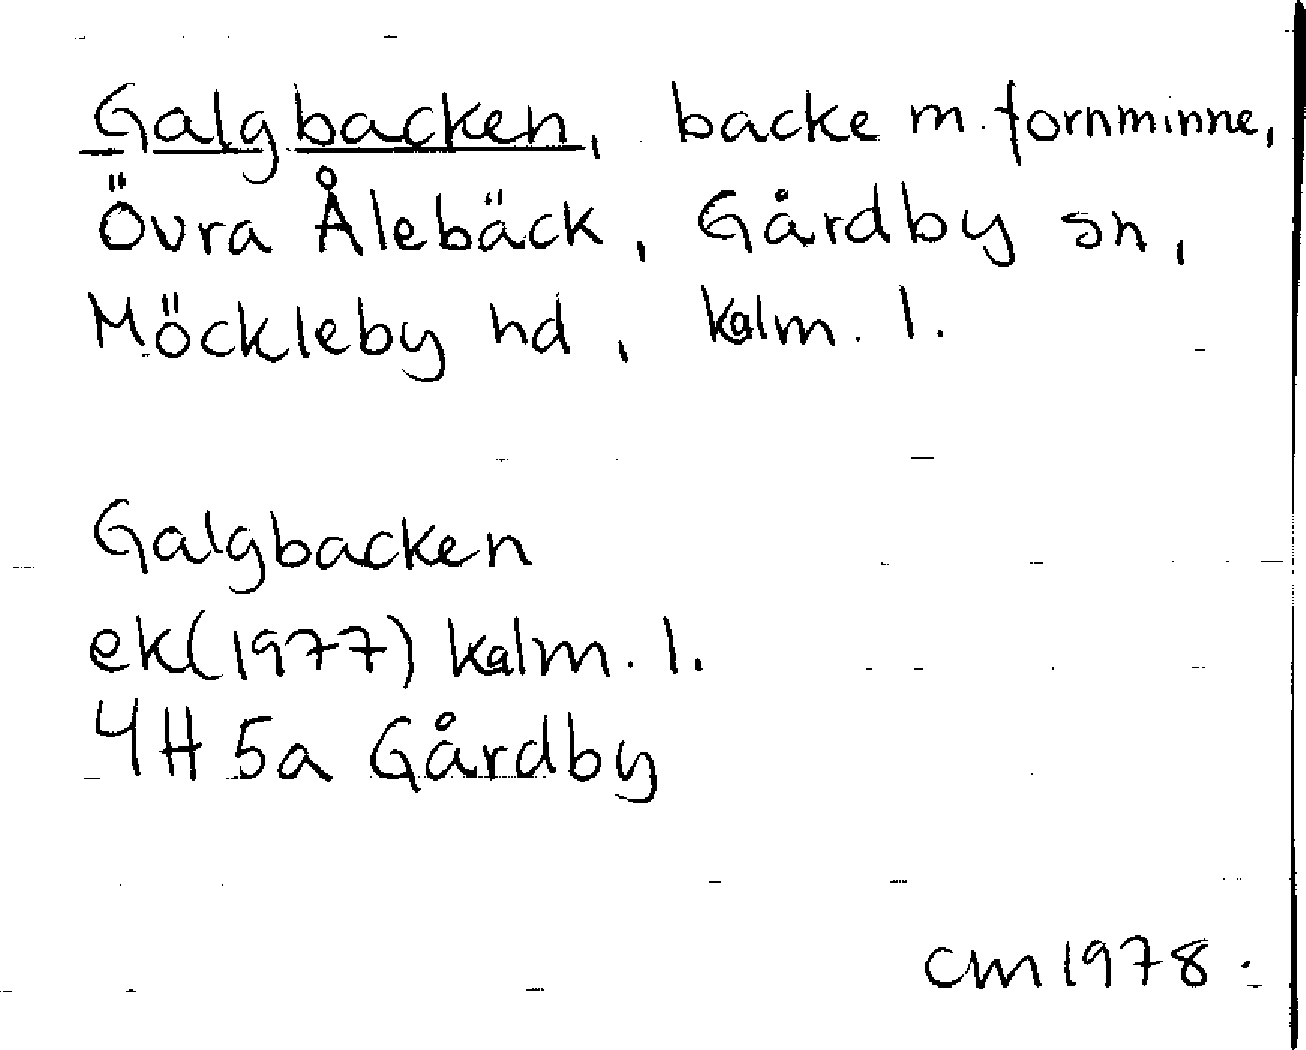 Galgbacken, backe m. fornminne,
Övra Ålebäck, Gårdby sn,
Möckleby hd, kalm. l.
Galgbacken
ek(1977) kalm. l.
4H 5a Gårdby
cm 1978.